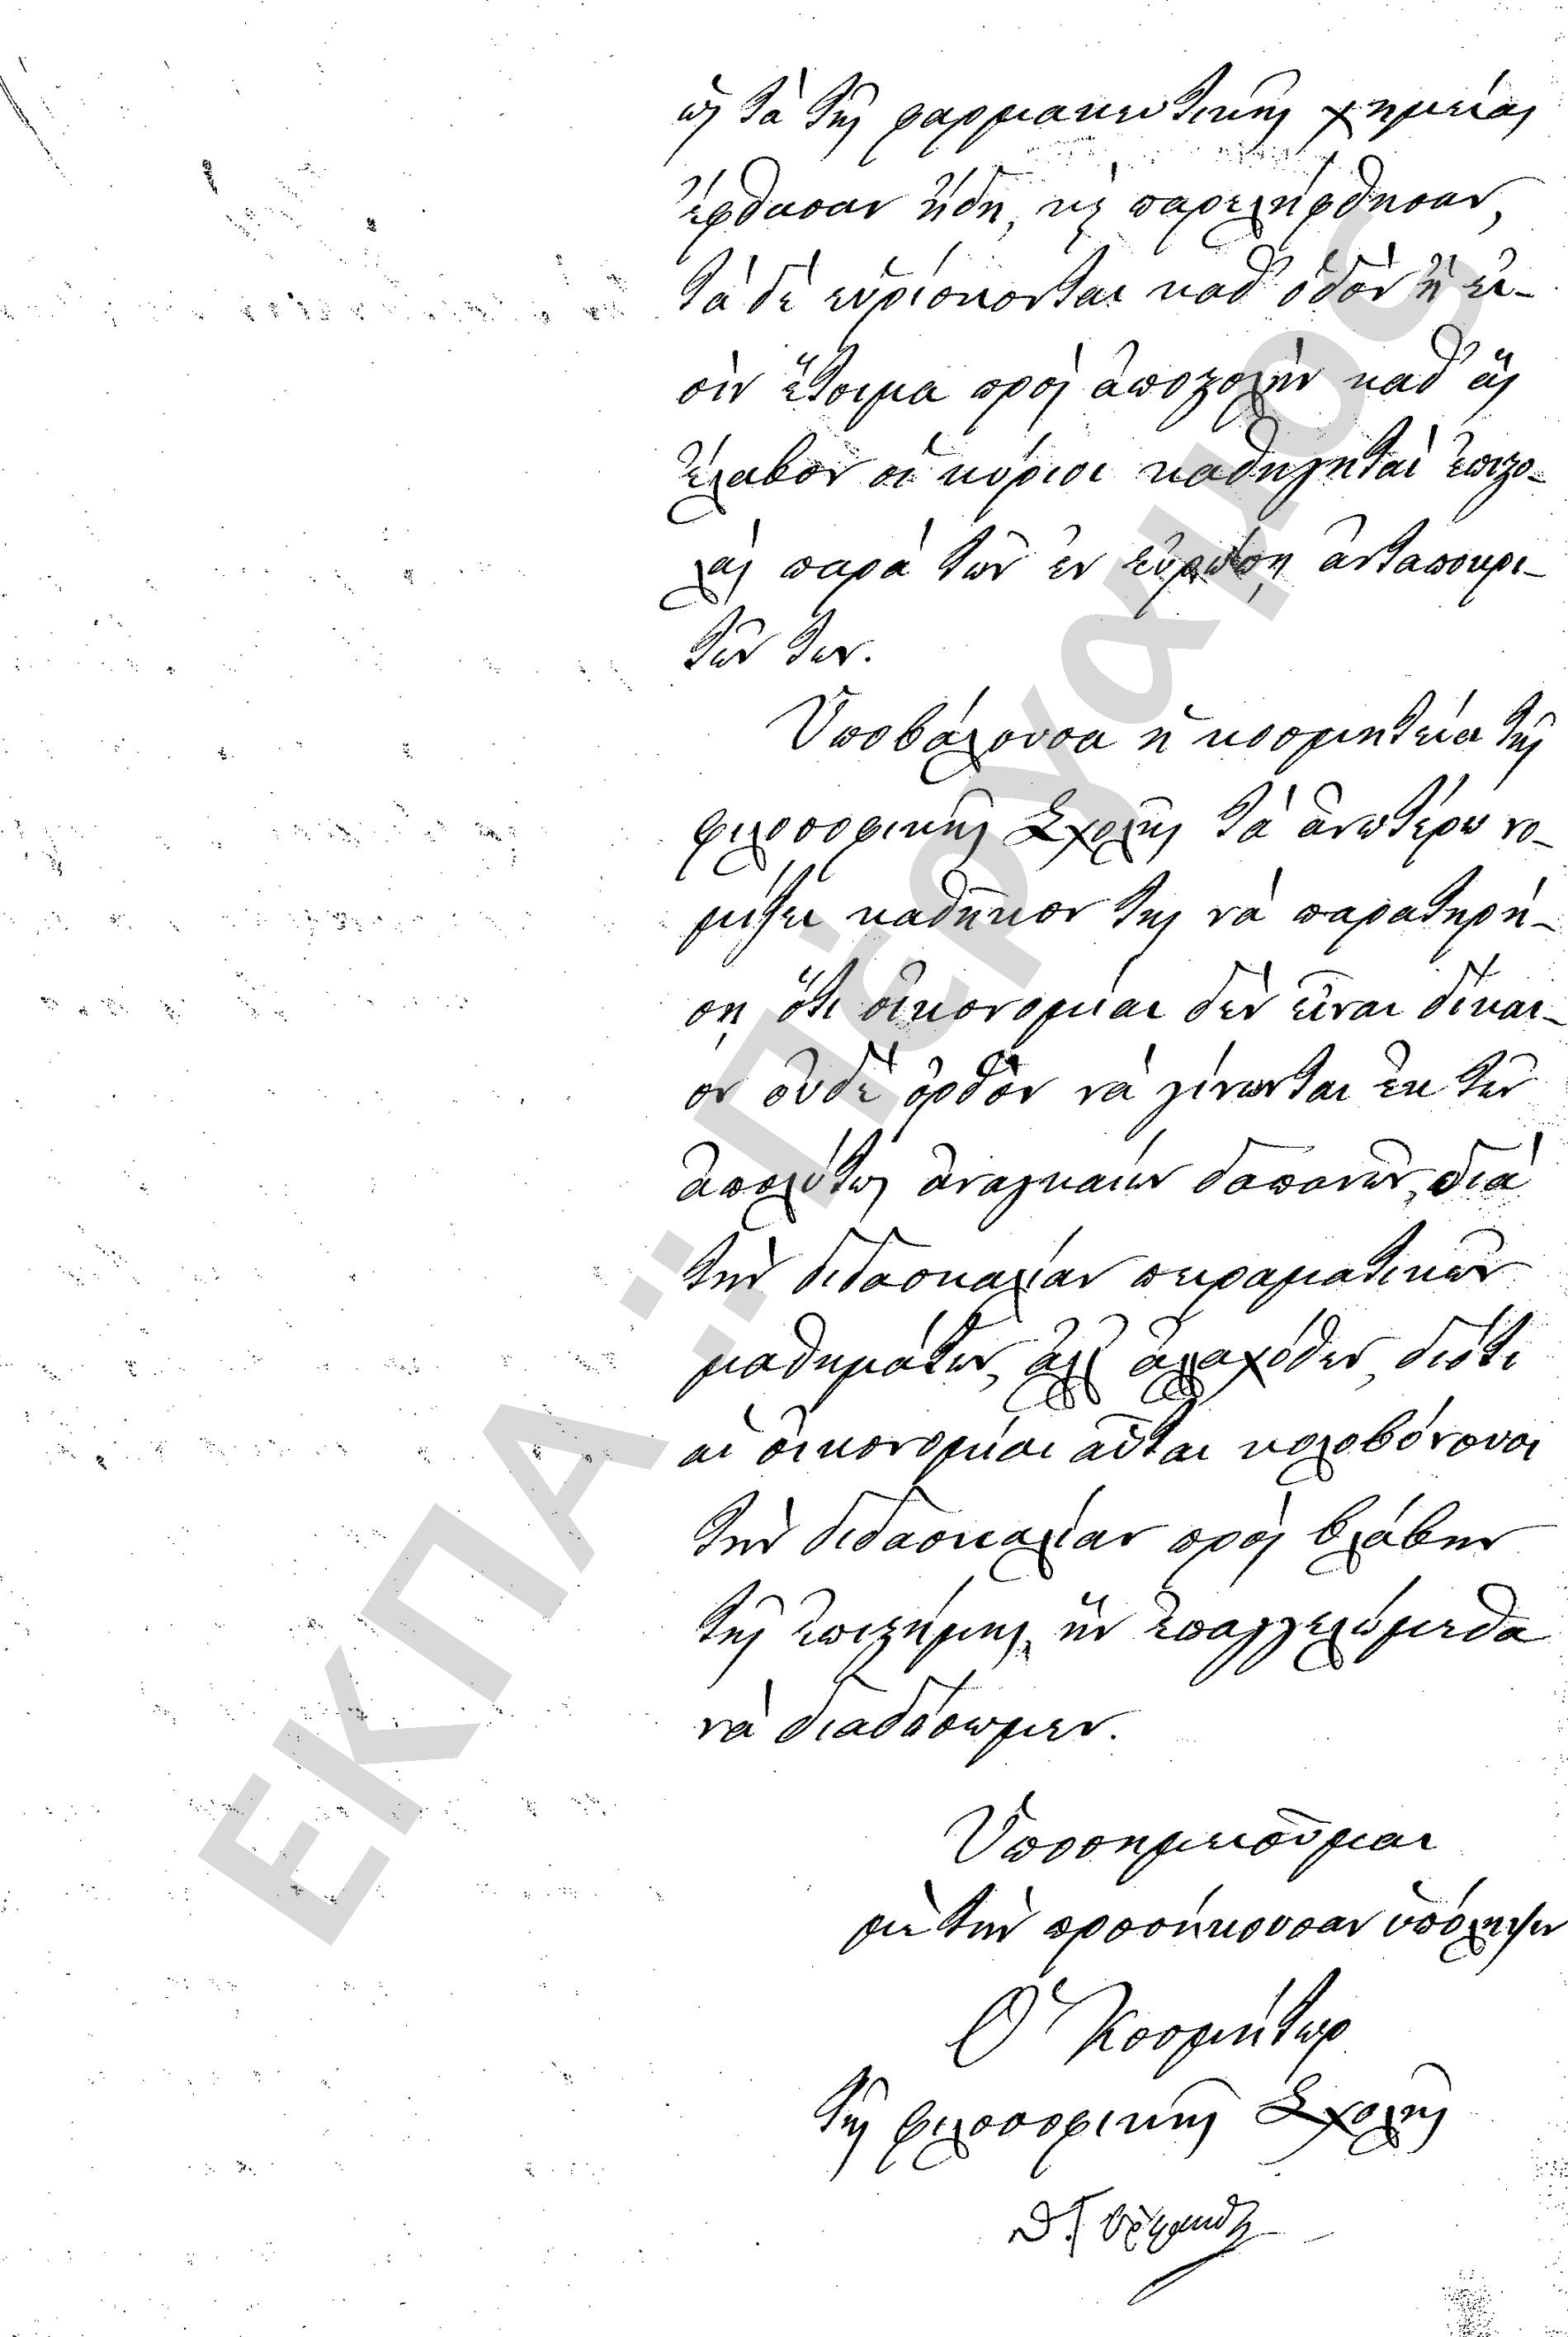 ὡς τὰ τῆς φαρμακευτικῆς χημείας
ἔφθασαν ἤδη, κ̀ παρελήφθησαν,
τὰ δὲ εὑρίσκονται καθ' ὁδὸν ἢ εἰ-
σὶν ἕτοιμα πρὸς ἀποστολὴν καθ' ἃς
ἔλαβον οἱ κύριοι καθηγηταὶ ἐπιστο-
λὰς παρὰ τῶν ἐν Εὐρώπῃ ἀνταποκρι-
τῶν των.
Ὑποβάλουσα ἡ κοσμητεία τῆς
φιλοσοφικῆς Σχολῆς τὰ ἀνωτέρω νο-
μίζει καθῆκον της νὰ παρατηρή-
σῃ ὅτι οἰκονομίαι δὲν εἶναι δίκαι-
ον οὐδὲ ὀρθὸν νὰ γίνωνται ἐκ τῶν
ἀπολύτως ἀναγκαίων δαπανῶν, διὰ
τὴν διδασκαλίαν πειραματικῶν
μαθημάτων, ἀλλ' ἀλλαχόθεν, διότι
αἱ οἰκονομίαι αὗται κολοβόνουσι
τὴν διδασκαλίαν πρὸς βλάβην
τῆς ἐπιστήμης, ἣν ἐπαγγελώμεθα
νὰ διαδόσωμεν.
Ὑποσημειοῦμαι
μὲ τὴν προσήκουσαν ὑπόληψιν
Ὁ Κοσμήτωρ
τῆς φιλοσοφικῆς Σχολῆς
ΕΚΠΑ:: Πέργαμος